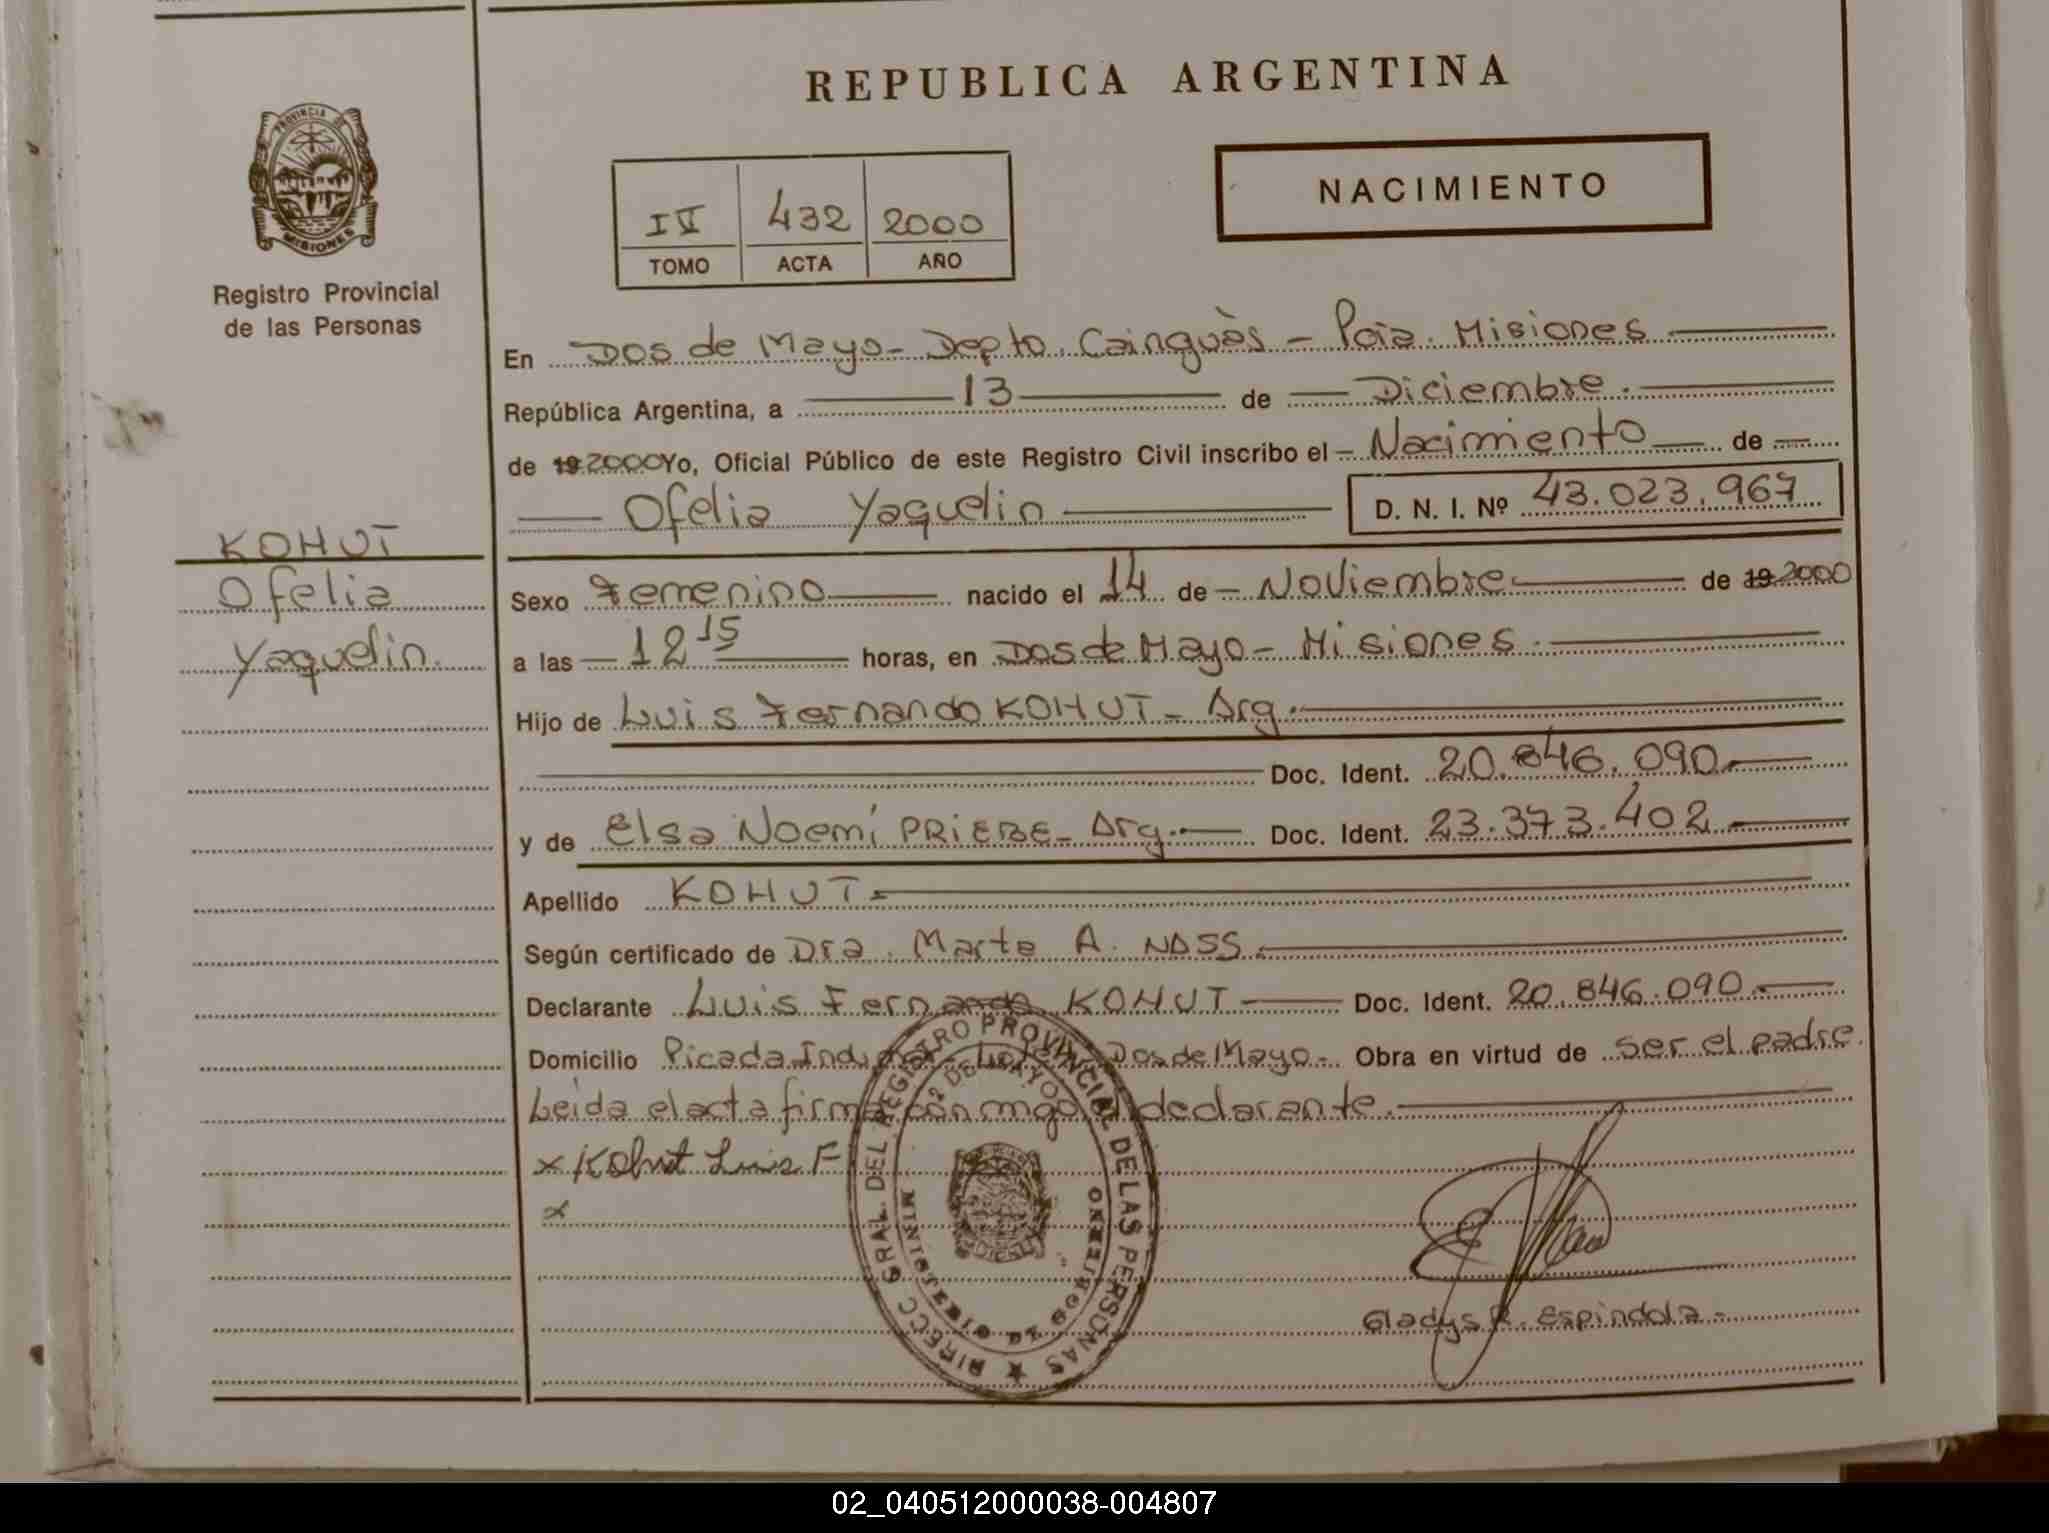 REPUBLICA ARGENTINA
PROVINCIA DE
MISIONES
Registro Provincial
de las Personas
NACIMIENTO
IV 432 2000
TOMO ACTA AÑO
En Dos de Mayo - Depto. Cainguàs - Pcia. Misiones
República Argentina, a 13 de Diciembre.
de 19 2000 Yo, Oficial Público de este Registro Civil inscribo el - Nacimiento de
Ofelia Yaquelin D. N. I. Nº 43.023.967
KOHUT
Ofelia
Yaquelin.
Sexo Femenino nacido el 14 de - Noviembre de 19 2000
a las 12 15 horas, en Dos de Mayo - Misiones.
Hijo de Luis Fernando KOHUT - Arg.
Doc. Ident. 20.846.090
y de Elsa Noemí PRIEBE - Arg. Doc. Ident. 23.373.402
Apellido KOHUT
Según certificado de Dra. Marta A. NASS
Declarante Luis Fernando KOHUT Doc. Ident. 20.846.090
Domicilio Picada Dos de Mayo - Obra en virtud de ser el padre.
Leida el acta firma conmigo el declarante.
x Kohut Luis F
x
DIRECC GRAL. DEL REGISTRO PROVINCIAL DE LAS PERSONAS
2 DE MAYO
MINISTERIO DE GOBIERNO
Gladys R. Espindola
02_040512000038-004807